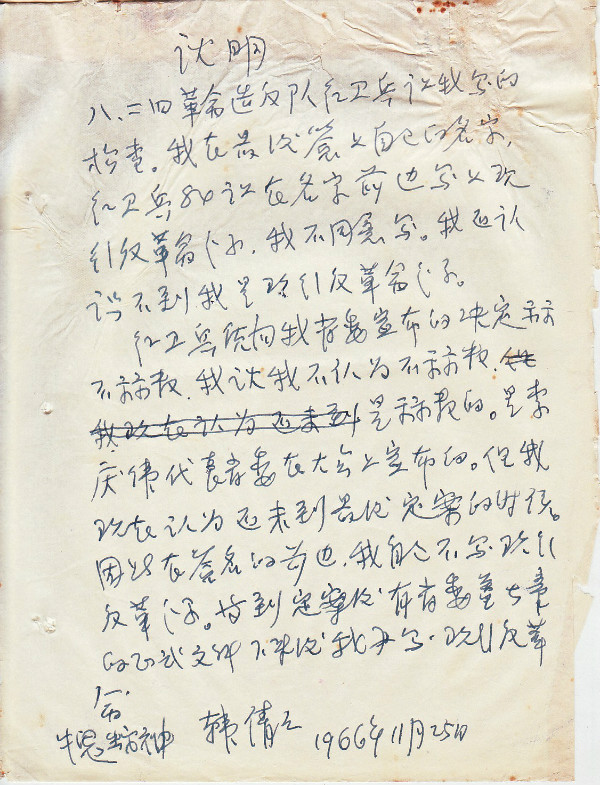 说明
八.二四革命造反队红卫兵让我写的
检查。我在最后签上自己的名字,
红卫兵叫让在名字前边写上现
引反革命分子,我不同意写。我还认
识不到我是现引反革命分子。
红卫兵质问我省委宣布的决定示示
不示示数,我说我不认为不示示数,
我现在认为还未到是示示数的。是李
庆伟代表省委在大会上宣布的。但我
现在认为还未到最后定案的时候。
因此在签名的前边,我自己不写现引
反革分子。待到定案后有省委盖大章
的正式文件下来后我再写.现引反革
命
牛鬼蛇神 韩倩之 1966年11月25日